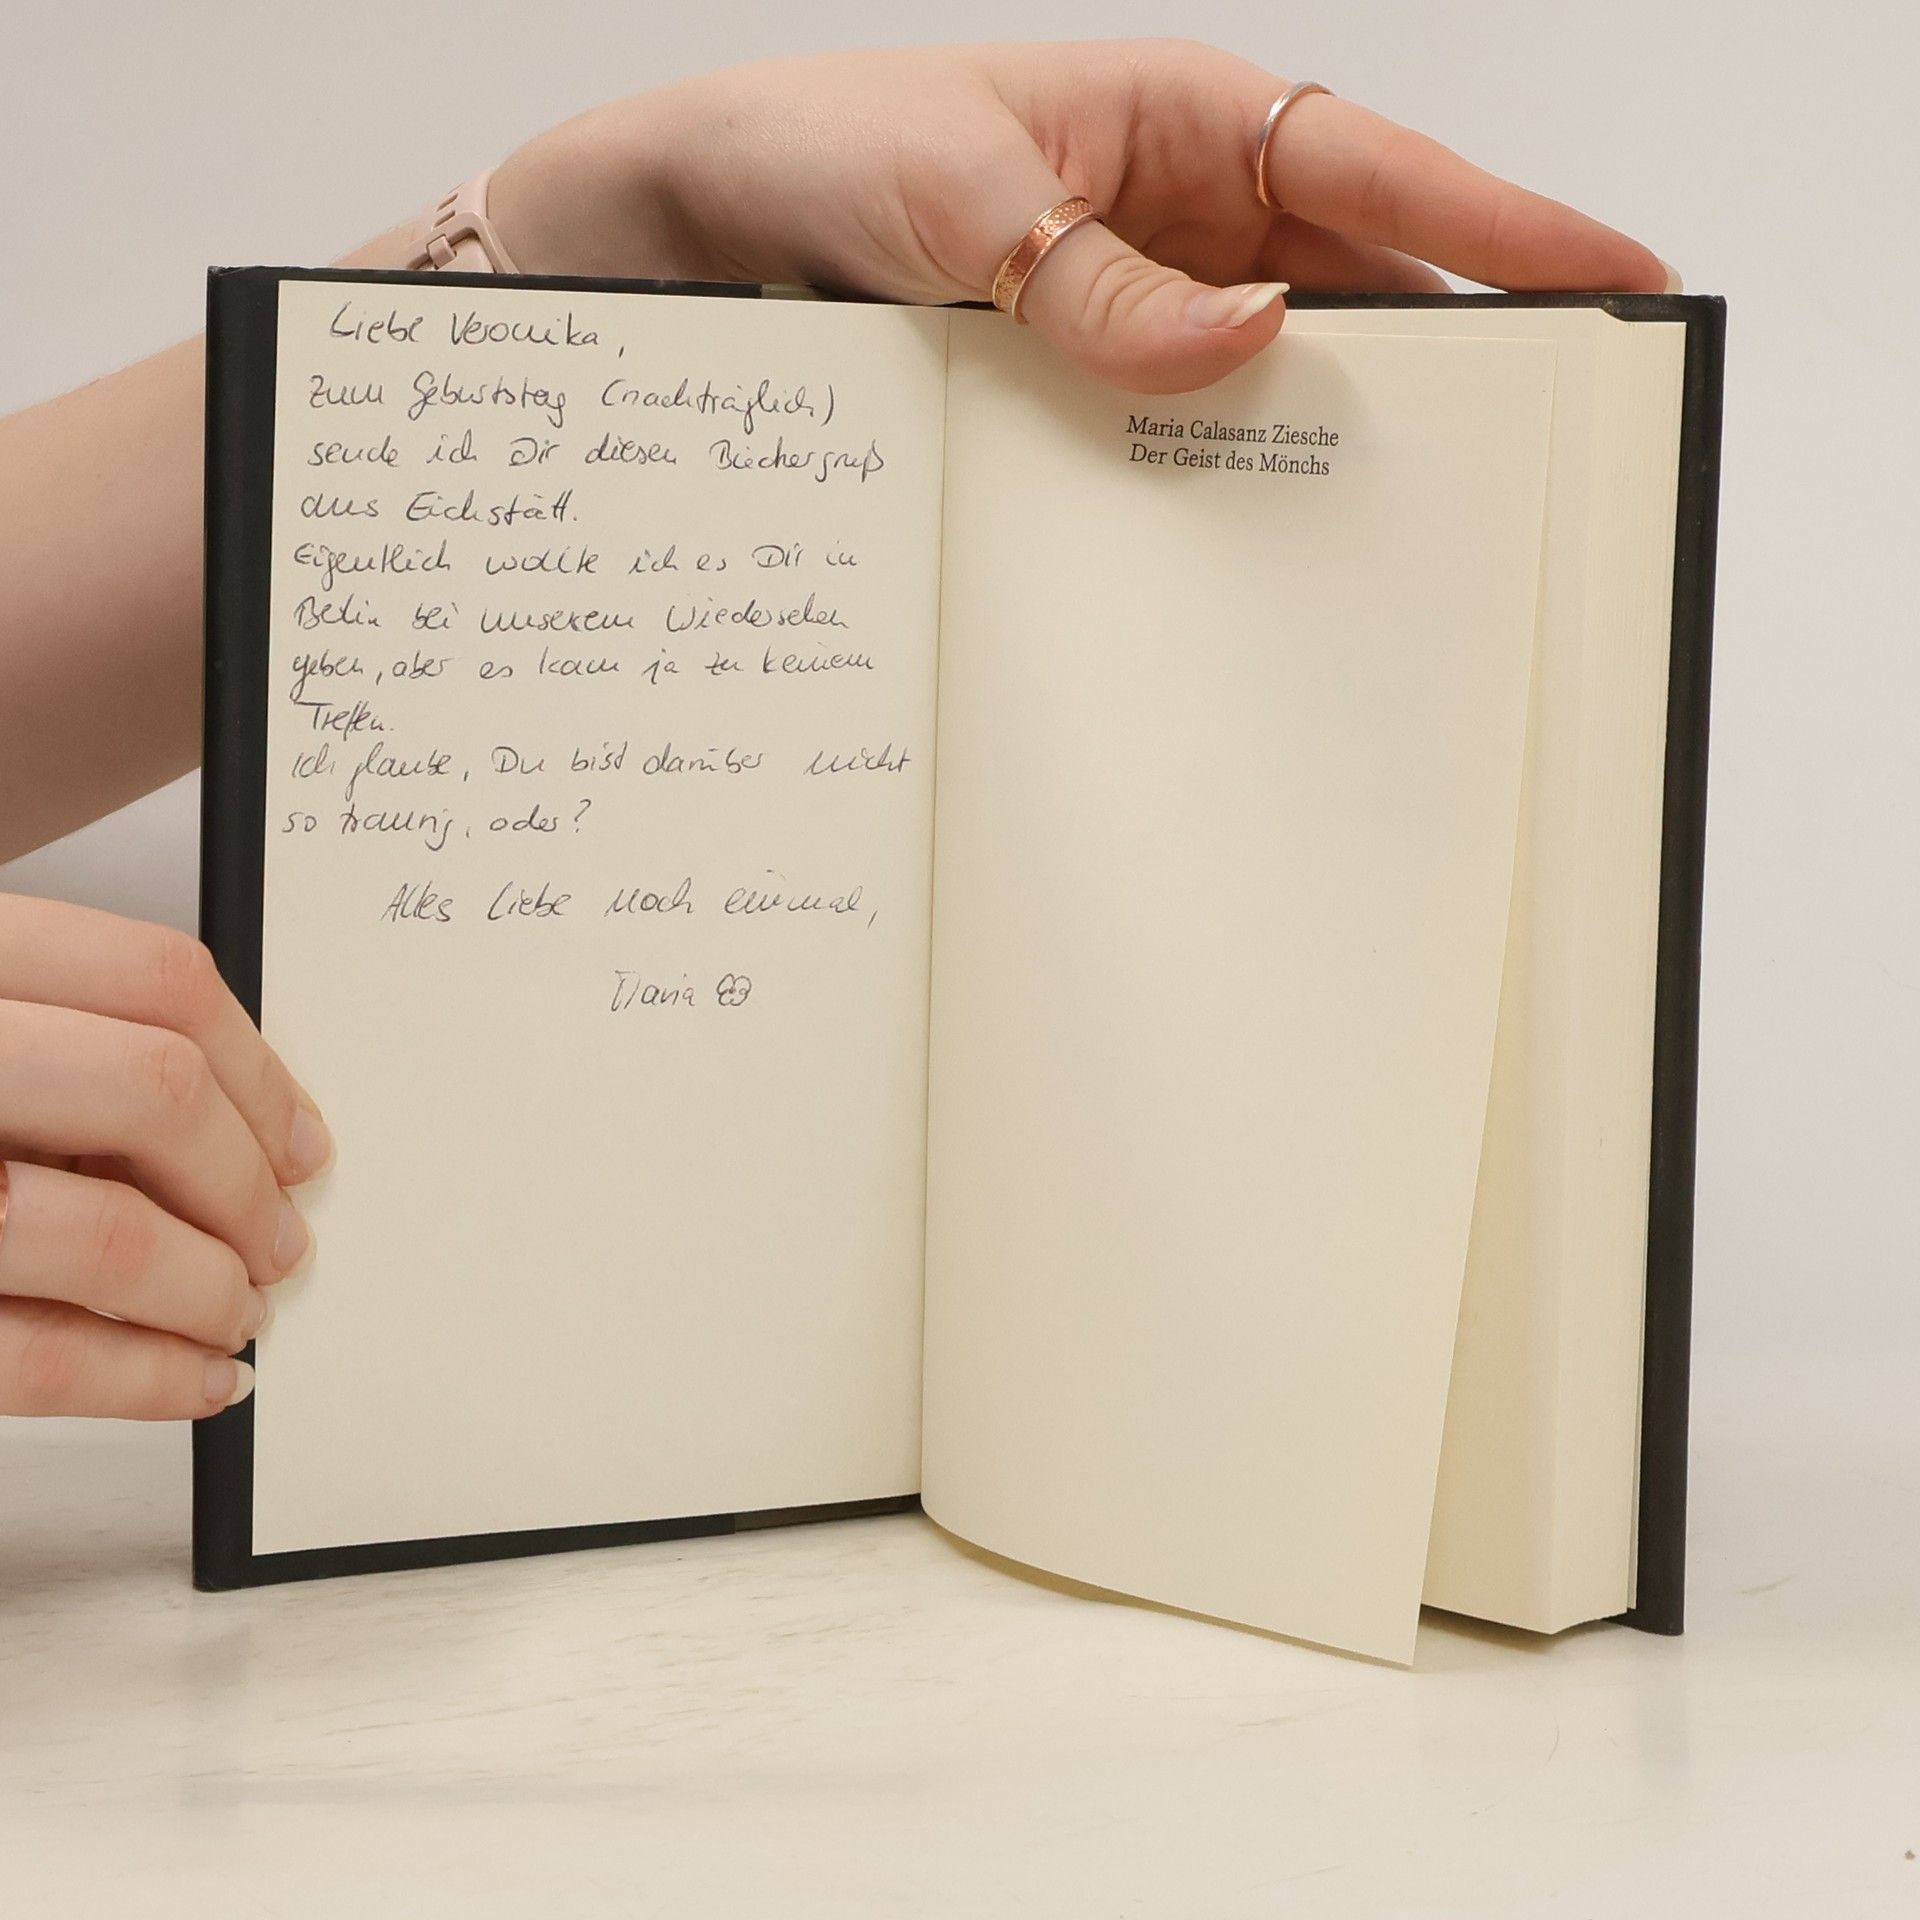 Liebe Veronika,
zum Geburtstag (nachträglich)
sende ich Dir diesen Büchergruß
aus Eichstätt.
Eigentlich wollte ich es Dir in
Berlin bei unserem Wiedersehen
geben, aber es kam ja zu keinem
Treffen.
Ich glaube, Du bist darüber nicht
so traurig, oder?
Alles Liebe noch einmal,
Maria
Maria Calasanz Ziesche
Der Geist des Mönchs